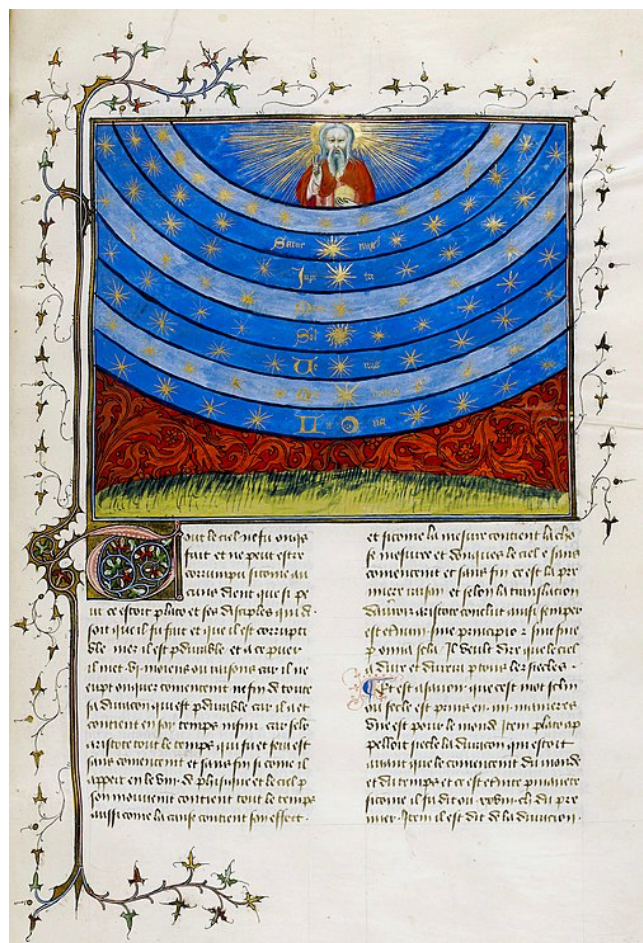 Satur nus
Jupi ter
Mars
Sol
Ve nus
Mer curius
Lu na
Tout le ciel ne fu onqs
fait et ne peut estre
corrumpu sicome au
cuns dient que si pe
ut ce estoit plato et ses disciples qui d
soit que il fu fait et que il est corrupti
ble mez il est pdurable et a ce puer
il met vi moiens ou raisons car il ne
eut onques comencent ne fin d toute
sa duracon qui est pdurable car il a et
contient en soy temps infini car selo
aristote tout le temps qui fu et sera est
sans comencent et sans fin si come il
appert en le viii d phisique et le ciel p
son mouvent contient tout le temps
aussi come la cause contient son effect.
et sicome la mesure contient la cho
se mesuree et donques le ciel e sans
comencent et sans fin ce est la pre
miere raison et selon la translation
d'averr aristote conclut ainsi semper
est et num sine principio z sine fine
p omia scla. Il veult dire que le ciel
a dure et durera p tous les siecles.
Et est assavoir que cest mot sclm
ou secle est prins en iiii manieres
Une est pour le mond Item plato ap
pelloit siecle la duracon qui estoit
avant que le comencent du mond
et du temps et ce est et'nite p maniere
sicome il fu dit ou xxviii ch du pre
mier. Item il est dit d la duracion.